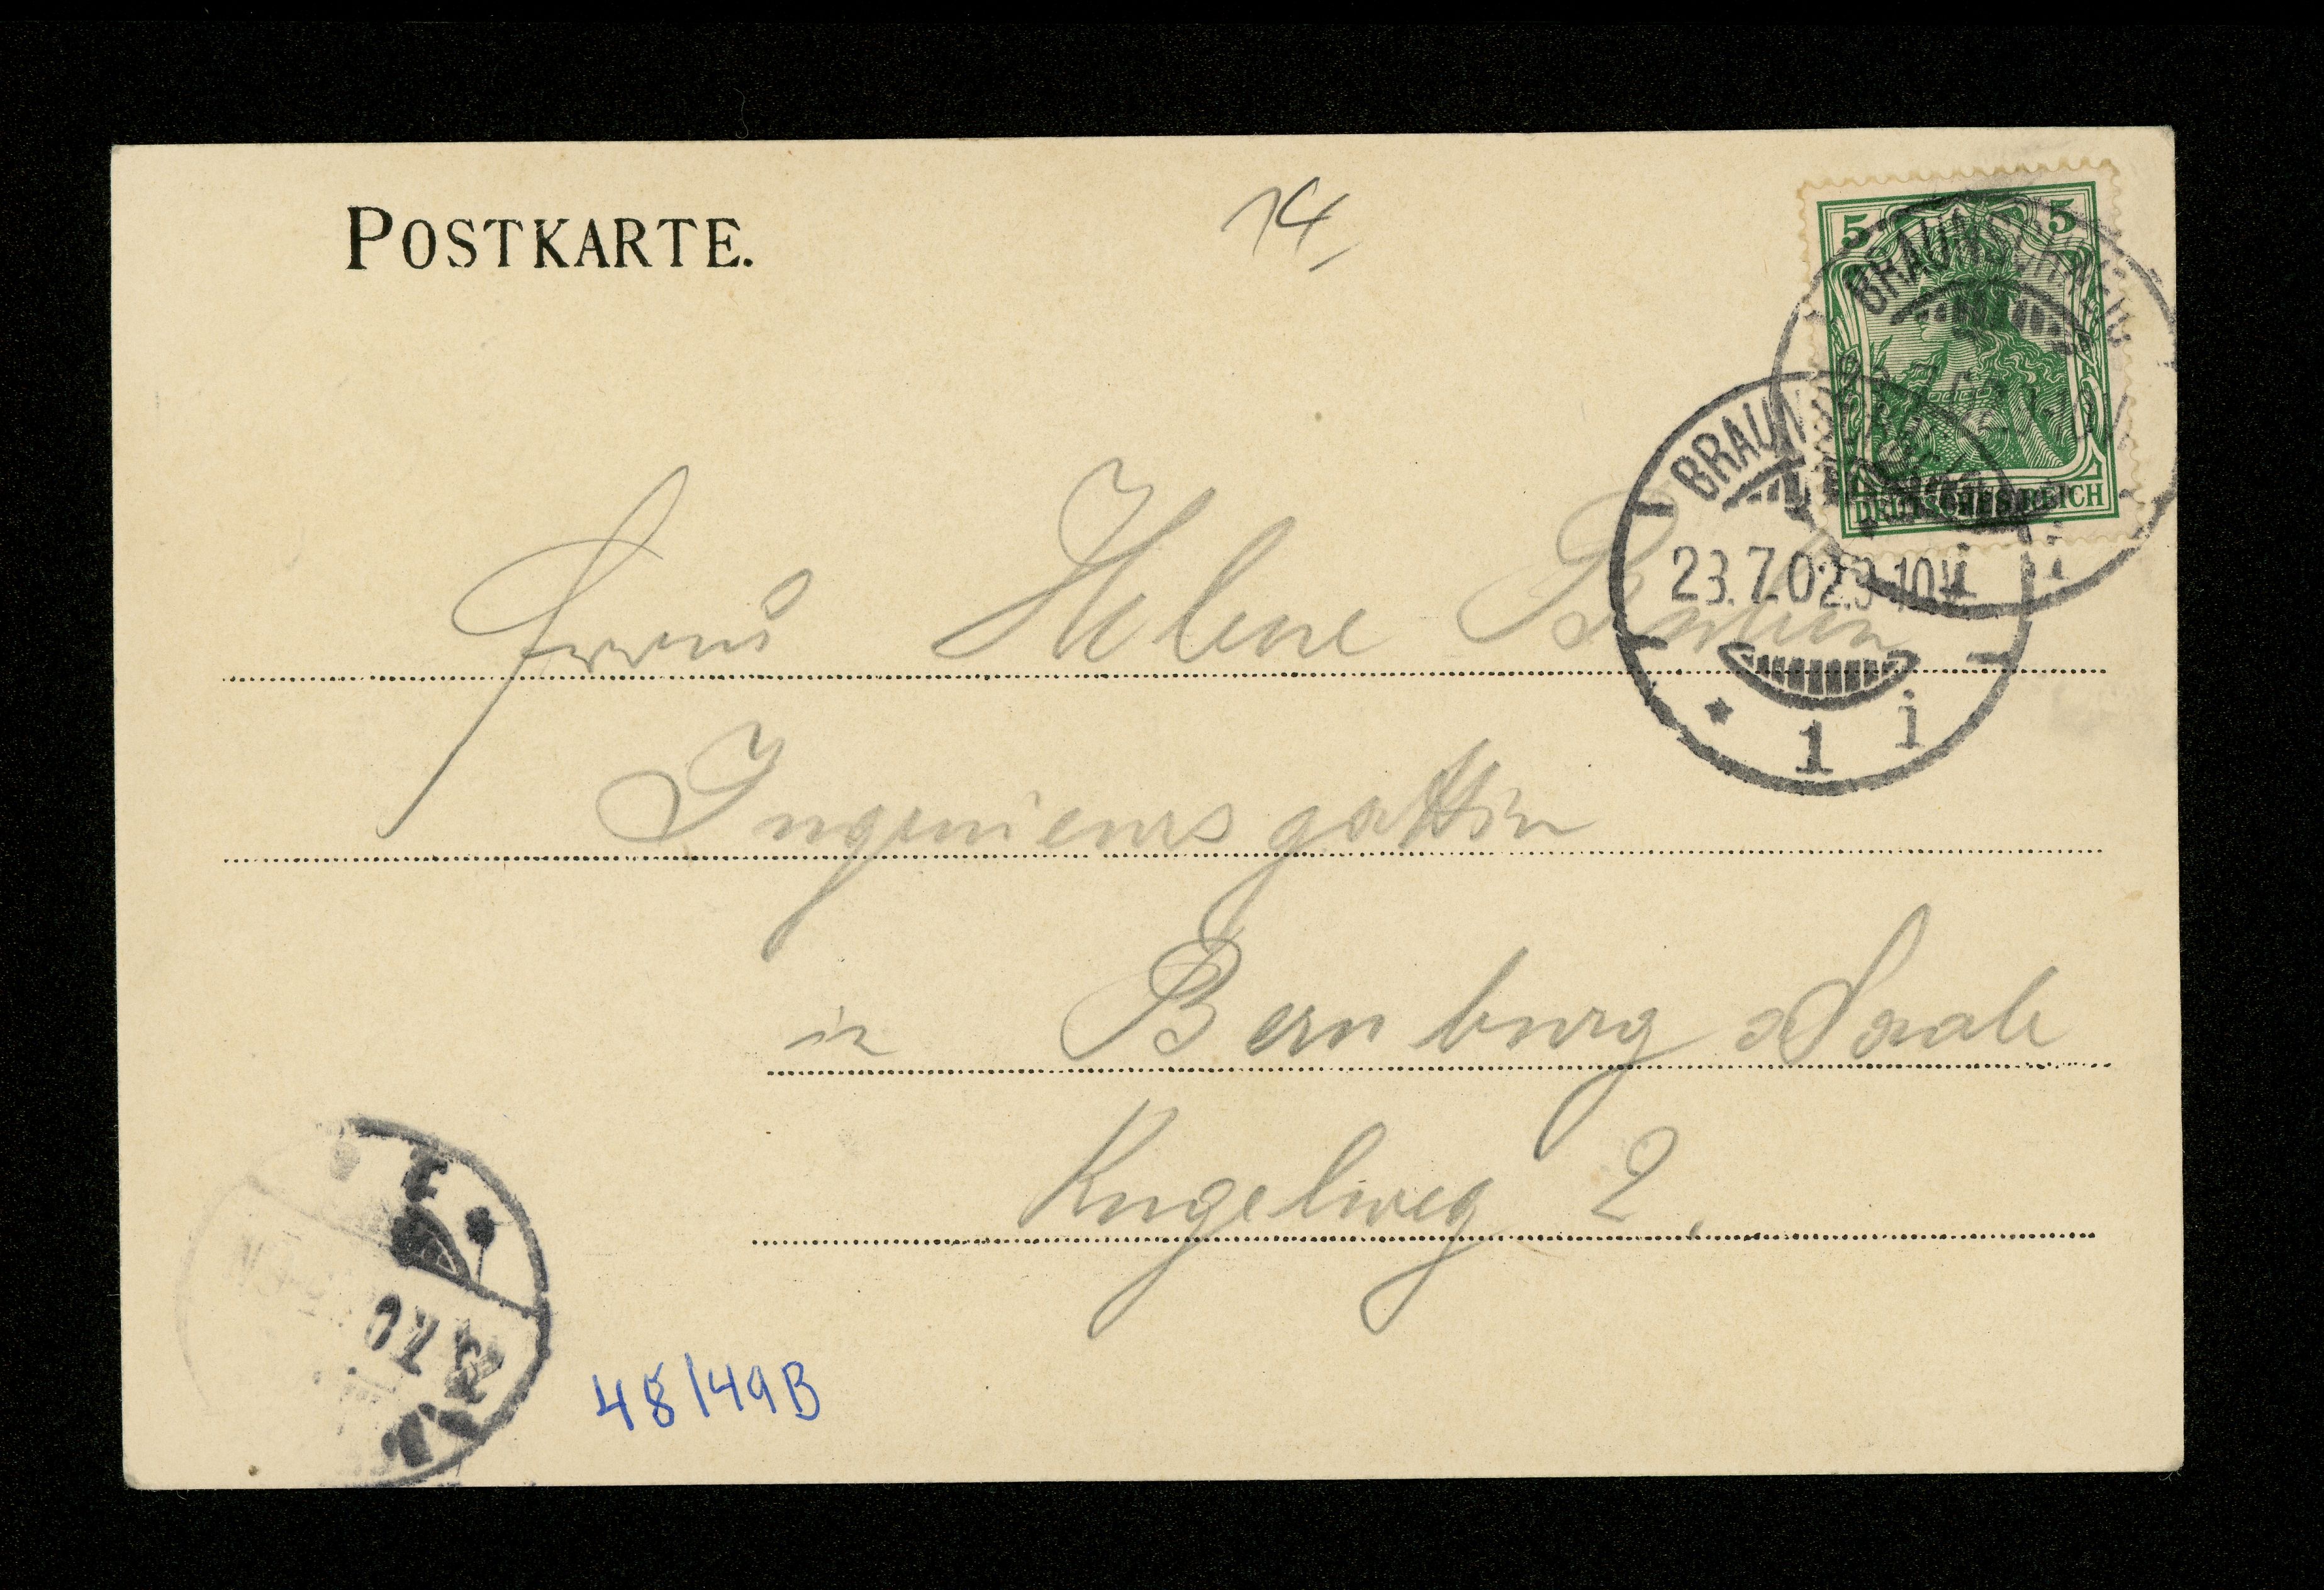 POSTKARTE.
14
5 5
BRAUNSCHWEIG
DEUTSCHES REICH
BRAUN
23.7.02.9-10V
* 1 i
Frau Helene
Ingenieursgattin
in Bernburg a Saale
Kugelweg 2.
48/49B